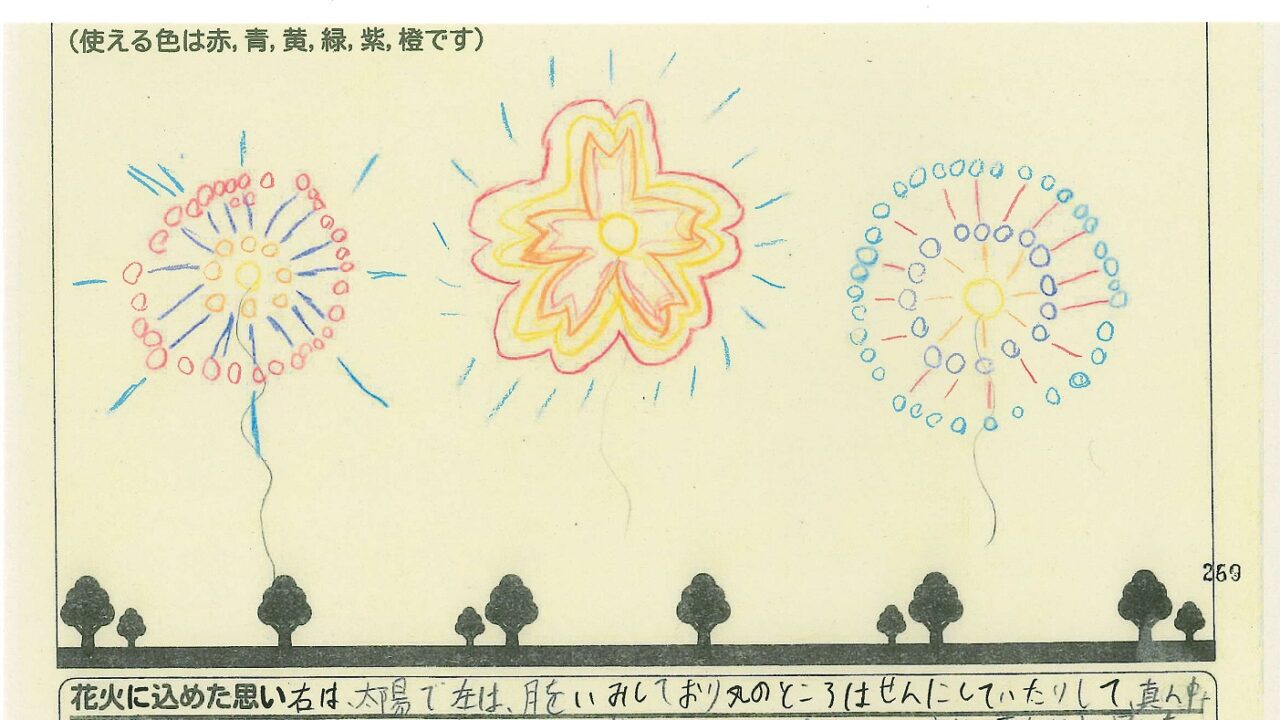 （使える色は赤，青，黄，緑，紫，橙です）
269
花火に込めた思い右は、太陽で左は、月をいみしており丸のところはせんにしていたりして、真ん中